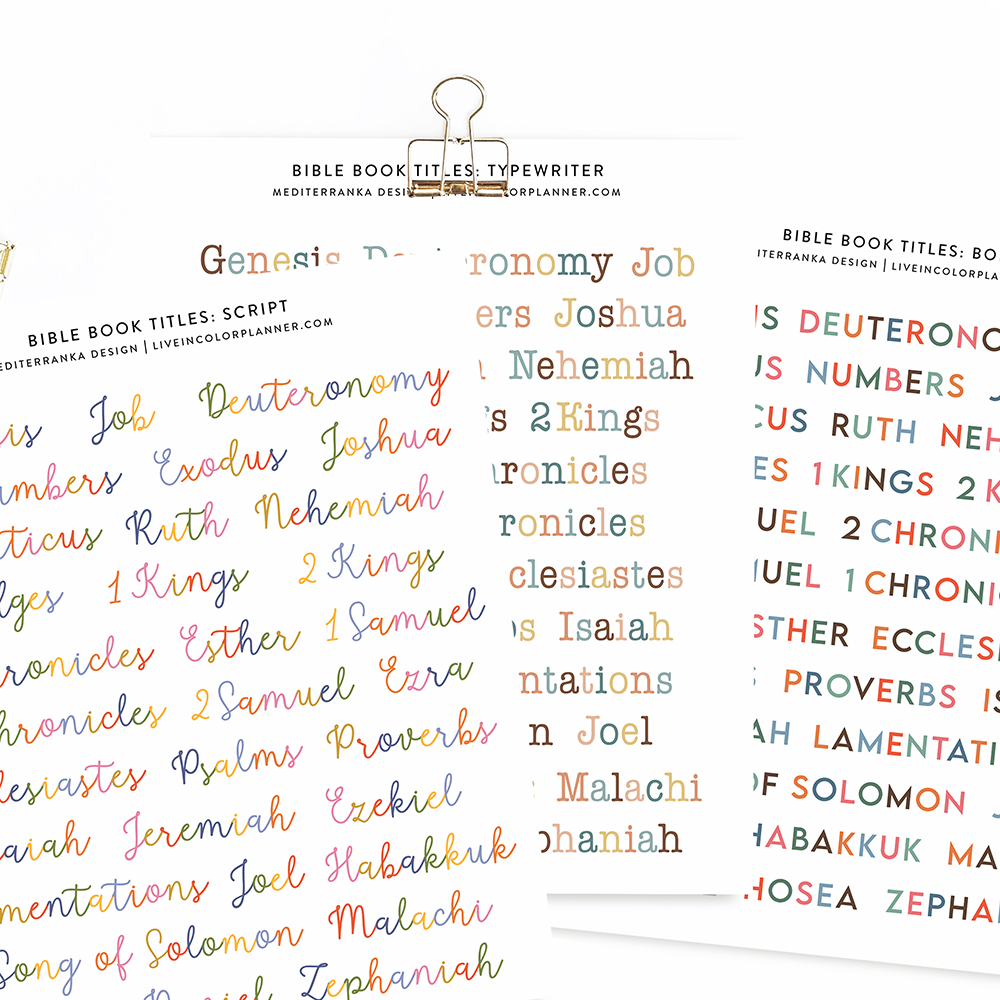 BIBLE BOOK TITLES: TYPEWRITER
MEDITERRANKA DESIGN
Genesis
ronomy Job
ers Joshua
Nehemiah
s 2 Kings
ronicles
ronicles
clesiastes
s Isaiah
ntations
n Joel
Malachi
phaniah
BIBLE BOOK TITLES: SCRIPT
MEDITERRANKA DESIGN | LIVEINCOLORPLANNER.COM
sis Job Deuteronomy
umbers Exodus Joshua
ticus Ruth Nehemiah
dges 1 Kings 2 Kings
ronicles Esther 1 Samuel
hronicles 2 Samuel Ezra
lesiastes Psalms Proverbs
aiah Jeremiah Ezekiel
mentations Joel Habakkuk
Song of Solomon Malachi
Zephaniah
BIBLE BOOK TITLES: BO
ITERRANKA DESIGN | LIVEINCOLORPLA
US DEUTERONO
US NUMBERS J
CUS RUTH NEH
ES 1 KINGS 2 K
UEL 2 CHRONI
UEL 1 CHRONI
STHER ECCLES
PROVERBS IS
AH LAMENTATI
OF SOLOMON J
HABAKKUK MA
HOSEA ZEPHA